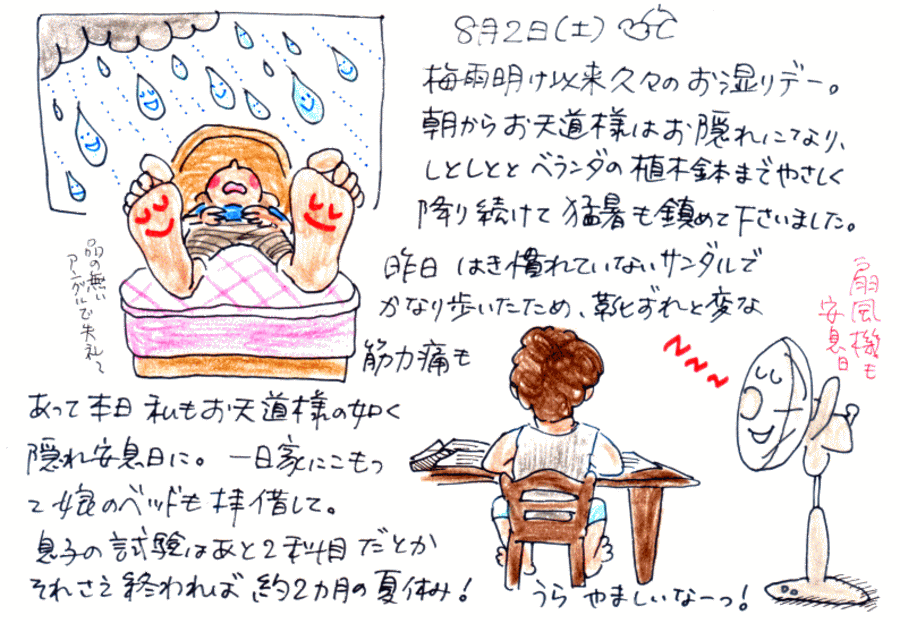 8月2日(土)
梅雨明け以来久々のお湿りデー。
朝からお天道様はお隠れになり、
しとしとと ベランダの植木鉢までやさしく
降り続けて猛暑も鎮めて下さいました。
昨日 はき慣れていないサンダルで
かなり歩いたため、靴ずれと変な
筋力痛も
あって本日 私もお天道様の如く
隠れ安息日に。一日家にこもっ
て娘のベッドも拝借して。
息子の試験はあと2科目だとか
それさえ終われば 約2カ月の夏休み!
うらやましいなーっ!
品の無い
アングルで失礼〜
扇風機も
安息日